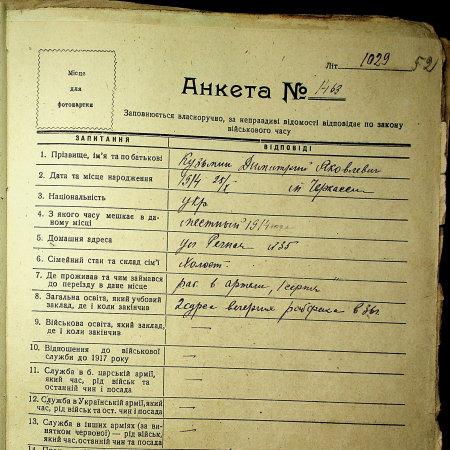 Літ. 1029 52
Місце
для
фотокартки
Анкета № 1463
Заповнюється власноручно, за неправдиві відомості відповідає по закону
військового часу
ЗАПИТАННЯ
ВІДПОВІДІ
1. Прізвище, ім'я та по батькові Кузьмин Димитрий Яковлевич
2. Дата та місце народження 1914 25/I м Черкассы
3. Національність укр
4. З якого часу мешкає в даному місці местный 1914
5. Домашня адреса ул Речная №35
6. Сімейний стан та склад сім'ї Холост
7. Де проживав та чим займався
до переїзду в дане місце
раб. в армии,
8. Загальна освіта, який учбовий
заклад, де і коли закінчив
2 курса вечерния рабфака в
9. Військова освіта, який заклад,
де і коли закінчив —
10. Відношення до військової
служби до 1917 року —
11. Служба в б. царській армії,
який час, рід військ та
останній чин і посада —
12. Служба в Українській армії, який
час, рід військ та ост. чин і посада —
13. Служба в інших арміях (за ви-
нятком червоної) — рід військ,
який час, останній чин та посада —